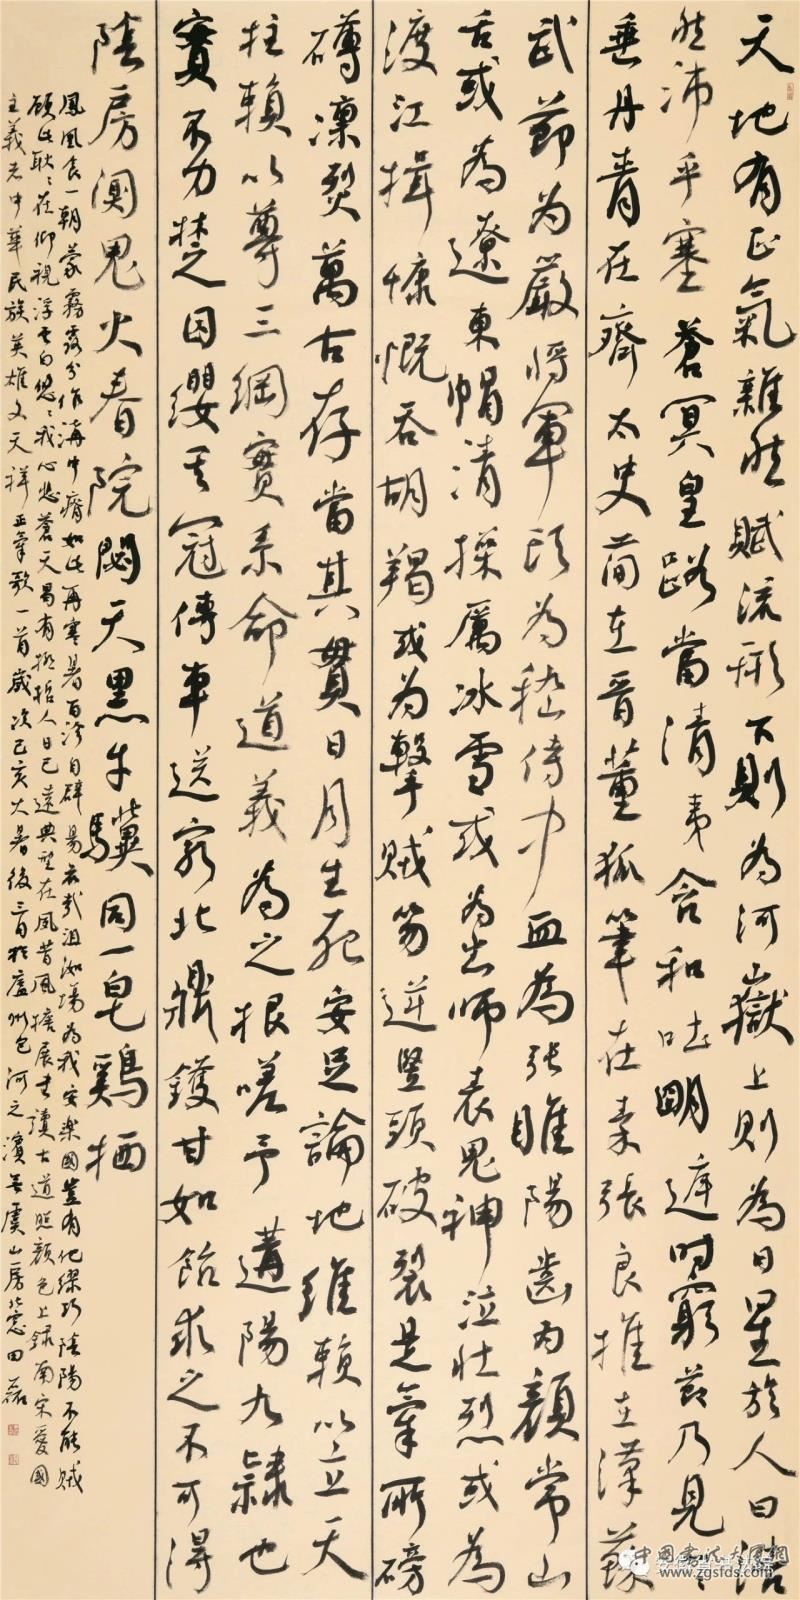 天地有正氣雜然賦流形下則為河嶽上則為日星於人曰浩
然沛乎塞蒼冥皇路當清夷含和吐明庭時窮節乃見一一
垂丹青在齊太史簡在晉董狐筆在秦張良椎在漢蘇
武節為嚴將軍頭為嵇侍中血為張睢陽齒為顏常山
舌或為遼東帽清操厲冰雪或為出師表鬼神泣壯烈或為
渡江楫慷慨吞胡羯或為擊賊笏逆豎頭破裂是氣所磅
礴凜烈萬古存當其貫日月生死安足論地維賴以立天
柱賴以尊三綱實系命道義為之根嗟予遘陽九隸也
實不力楚囚纓其冠傳車送窮北鼎鑊甘如飴求之不可得
陰房闃鬼火春院閟天黑牛驥同一皂鷄栖
鳳凰食一朝蒙霧露分作溝中瘠如此再寒暑百沴自辟易哀哉沮洳場為我安樂國豈有他繆巧陰陽不能賊
顧此耿耿在仰視浮雲白悠悠我心悲蒼天曷有極哲人日已遠典型在夙昔風簷展書讀古道照顏色上錄南宋愛國
主義者中華民族英雄文天祥正氣歌一首歲次己亥大暑後三日於廬州包河之濱無虞山房北窗田磊
www.zgsfds.com